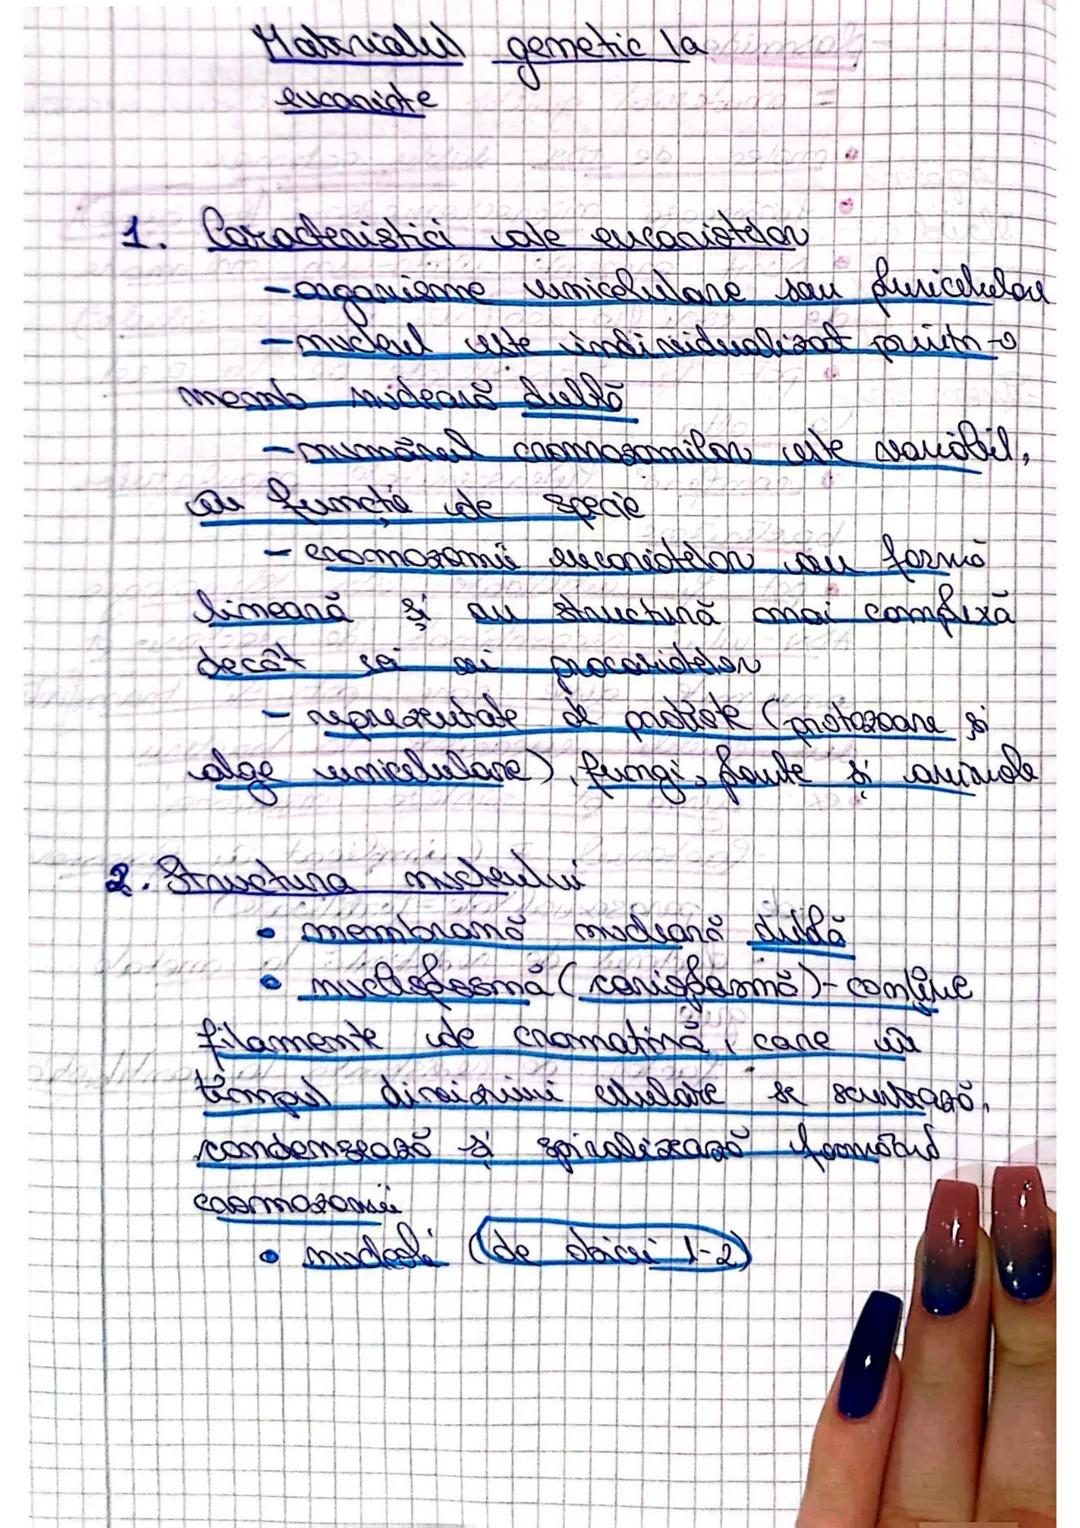 Materialul genetic la
eucariote
1. Caracteristici ale eucariotelor
- organisme unicelulare sau pluricelulare
- nucleul este individualizat printr-o
memb nucleară dublă
- numărul cromozomilor este variabil,
în funcție de specie
- cromozomii eucariotelor au formă
lineară și au structură mai complexă
decât cei ai procariotelor
- reprezentate de protiste (protozoare și
alge unicelulare), fungi, plante și animale
2. Structura nucleului
• membrană nucleară dublă
• nucleoplasmă (carioplasmă) - conține
filamente de cromatină, care în
timpul diviziunii celulare se scurtează,
condensează și spiralizează formând
cromozomii
• nucleoli (de obicei 1-2)